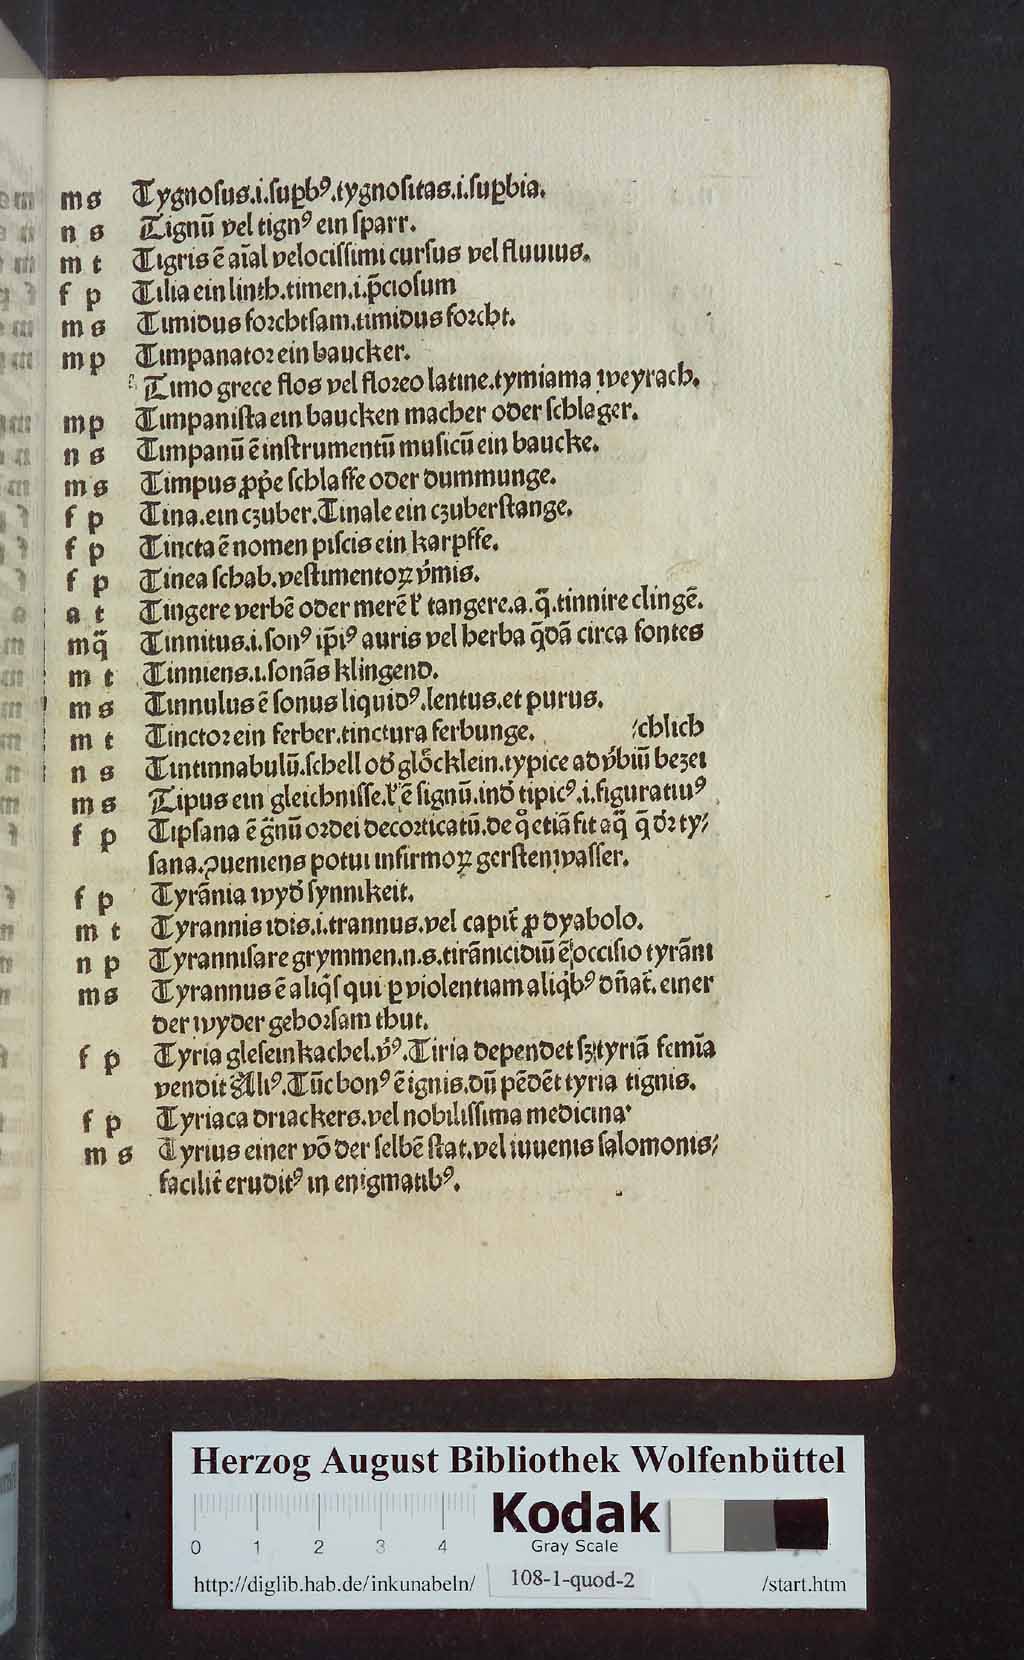 m s Tygnosus.i.sup̱bꝰ.tygnositas.i.sup̱bia.
n s Tignū vel tignꝰ ein sparr.
m t Tigris ē aīal velocissimi cursus vel fluuius.
f p Tilia ein linth.timen.i.p̄ciosum
m s Timidus forchtsam.timidus forcht.
m p Timpanator ein baucker.
Timo grece flos vel floreo latine.tymiama weyrach.
m p Timpanista ein baucken macher oder schlager.
n s Timpanū ē instrumentū musicū ein baucke.
m s Timpus ꝓp̄e schlaffe oder dummunge.
f p Tina.ein czuber.Tinale ein czuberstange.
f p Tincta ē nomen piscis ein karpffe.
f p Tinea schab.vestimentoꝝ v̓mis.
a t Tingere verbē oder merē ł tangere.a.q̄.tinnire clingē.
m q̄ Tinnitus.i.sonꝰ ip̄iꝰ auris vel herba q̄dā circa fontes
m t Tinniens.i.sonās klingend.
m s Tinnulus ē sonus liquidꝰ.lentus.et purus.
m t Tinctor ein ferber.tinctura ferbunge. /chlich
n s Tintinnabulū.schell od̓ glöcklein.typice adv̓biū bezei
m s Tipus ein gleichnisse.ł ē signū.ind̓ tipicꝰ.i.figuratiuꝰ
f p Tipsana ē g̈nū ordei decorticatū.de qͦ etiā fit aq̄ q̄ d̓r ty/
sana.ꝯueniens potui infirmoꝝ gerstenwasser.
f p Tyrānia wyd̓ synnikeit.
m t Tyrannis idis.i.trannus.vel capit̓ ꝓ dyabolo.
n p Tyrannisare grymmen.n.s.tirānicidiū ē occisio tyrāni
m s Tyrannus ē aliq̓s qui ꝑ violentiam aliq̓bꝰ dn̄at̓. einer
der wyder gehorsam thut.
f p Tyria glesein kachel.v̓ꝰ.Tiria dependet sꝫ tyriā femīa
vendit Aliꝰ.Tūc bonꝰ ē ignis.dū pēdēt tyria tignis.
f p Tyriaca driackers.vel nobilissima medicina
m s Tyrius einer vō der selbē stat.vel iuuenis salomonis/
facilit̓ eruditꝰ in enigmatibꝰ.
Herzog August Bibliothek Wolfenbüttel
Kodak
Gray Scale
0 1 2 3 4
http://diglib.hab.de/inkunabeln/ 108-1-quod-2 /start.htm